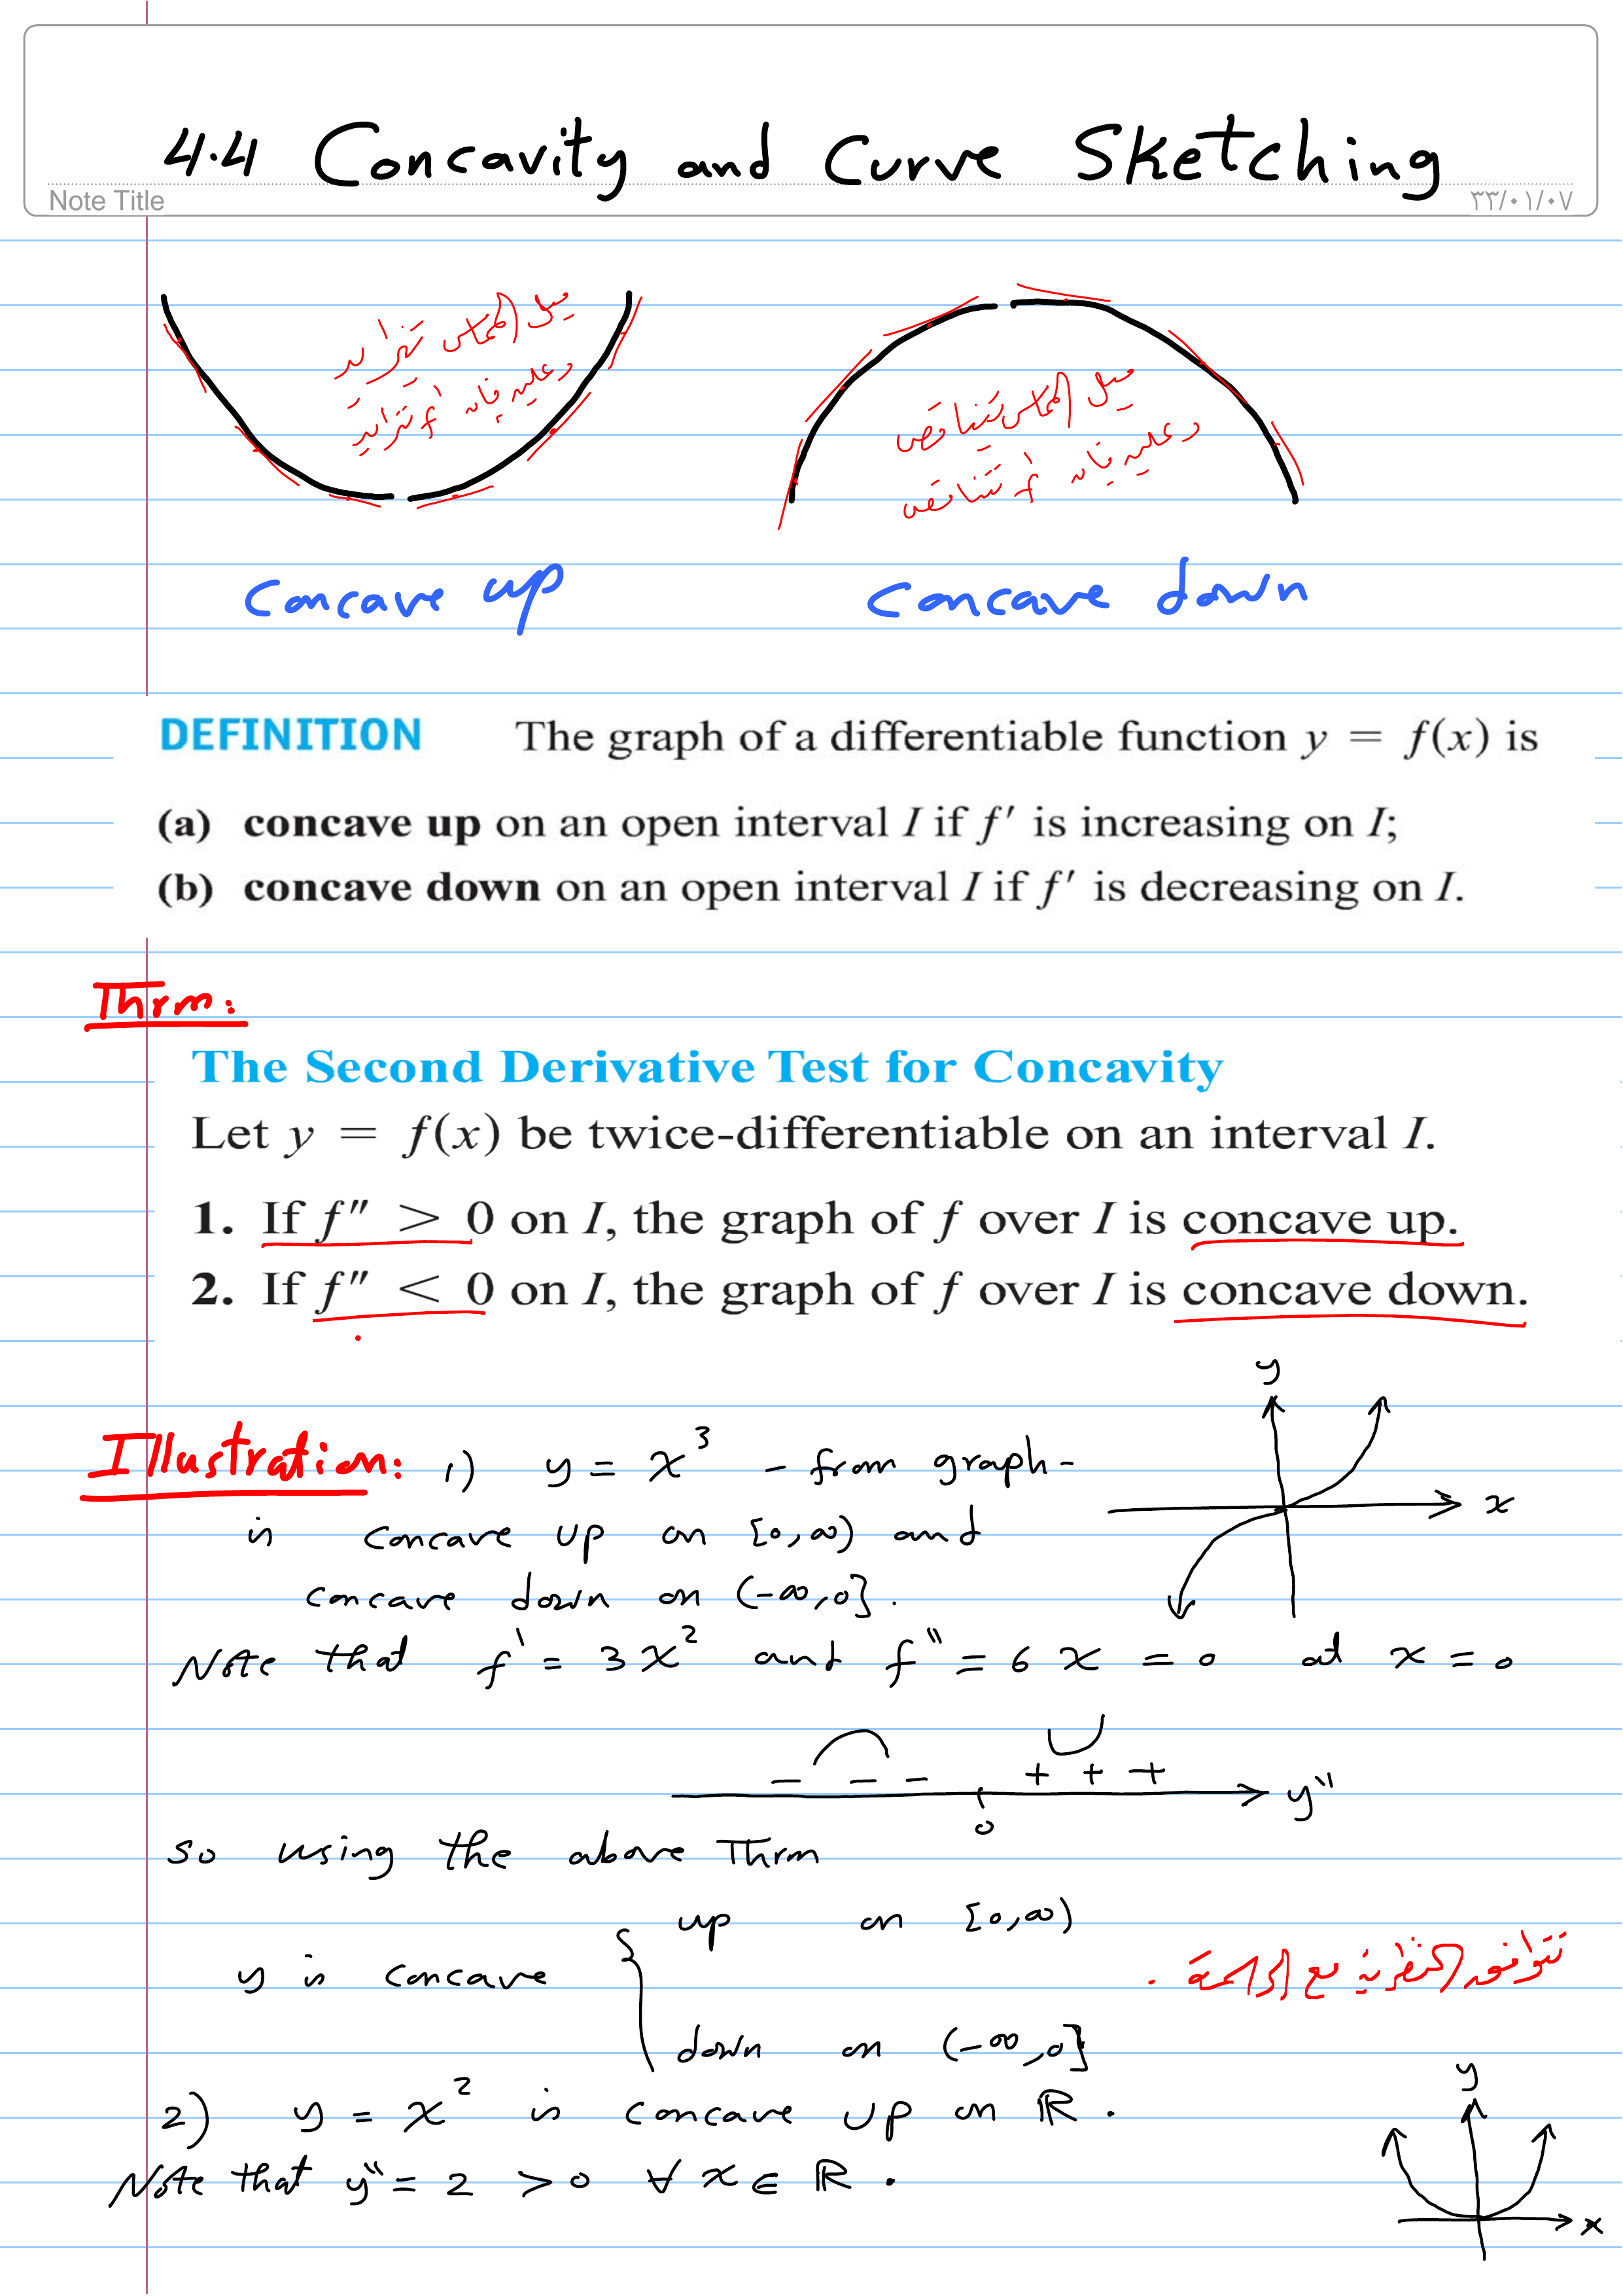 4.4 Concavity and Curve Sketching
Note Title
٣٣/٠١/٠٧
ميل المماس تتزايد
وعليه فإنه f' تتزايد
ميل المماس تتناقص
وعليه فإنه f' تتناقص
Concave up
Concave down
DEFINITION The graph of a differentiable function y = f(x) is
(a) concave up on an open interval I if f′ is increasing on I;
(b) concave down on an open interval I if f′ is decreasing on I.
Thrm:
The Second Derivative Test for Concavity
Let y = f(x) be twice-differentiable on an interval I.
1. If f″ > 0 on I, the graph of f over I is concave up.
2. If f″ < 0 on I, the graph of f over I is concave down.
y
x
Illustration: 1) y = x³ - from graph -
is concave up on [0,∞) and
concave down on (-∞,0].
Note that f' = 3x² and f" = 6x = 0 at x = 0
- - - + + + y"
0
so using the above Thrm
up on [0,∞)
y is concave {
تتوافق النظرية مع الرسمة .
down on (-∞,0]
2) y = x² is concave up on ℝ.
Note that y" = 2 > 0 ∀ x ∈ ℝ.
y
x